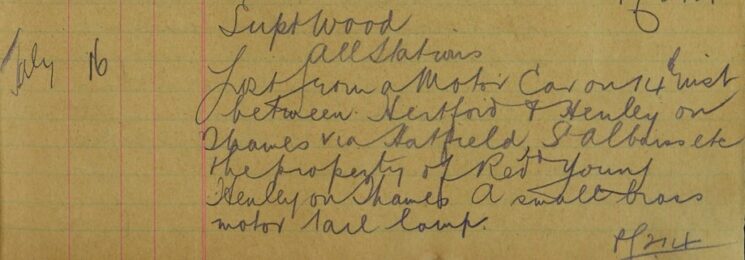 Supt Wood
July 16 All Stations
Lost from a Motor Car on 14th inst
between Hertford & Henley on
Thames via Hatfield, St Albans etc
the property of Young
Henley on Thames A small brass
motor tail lamp.